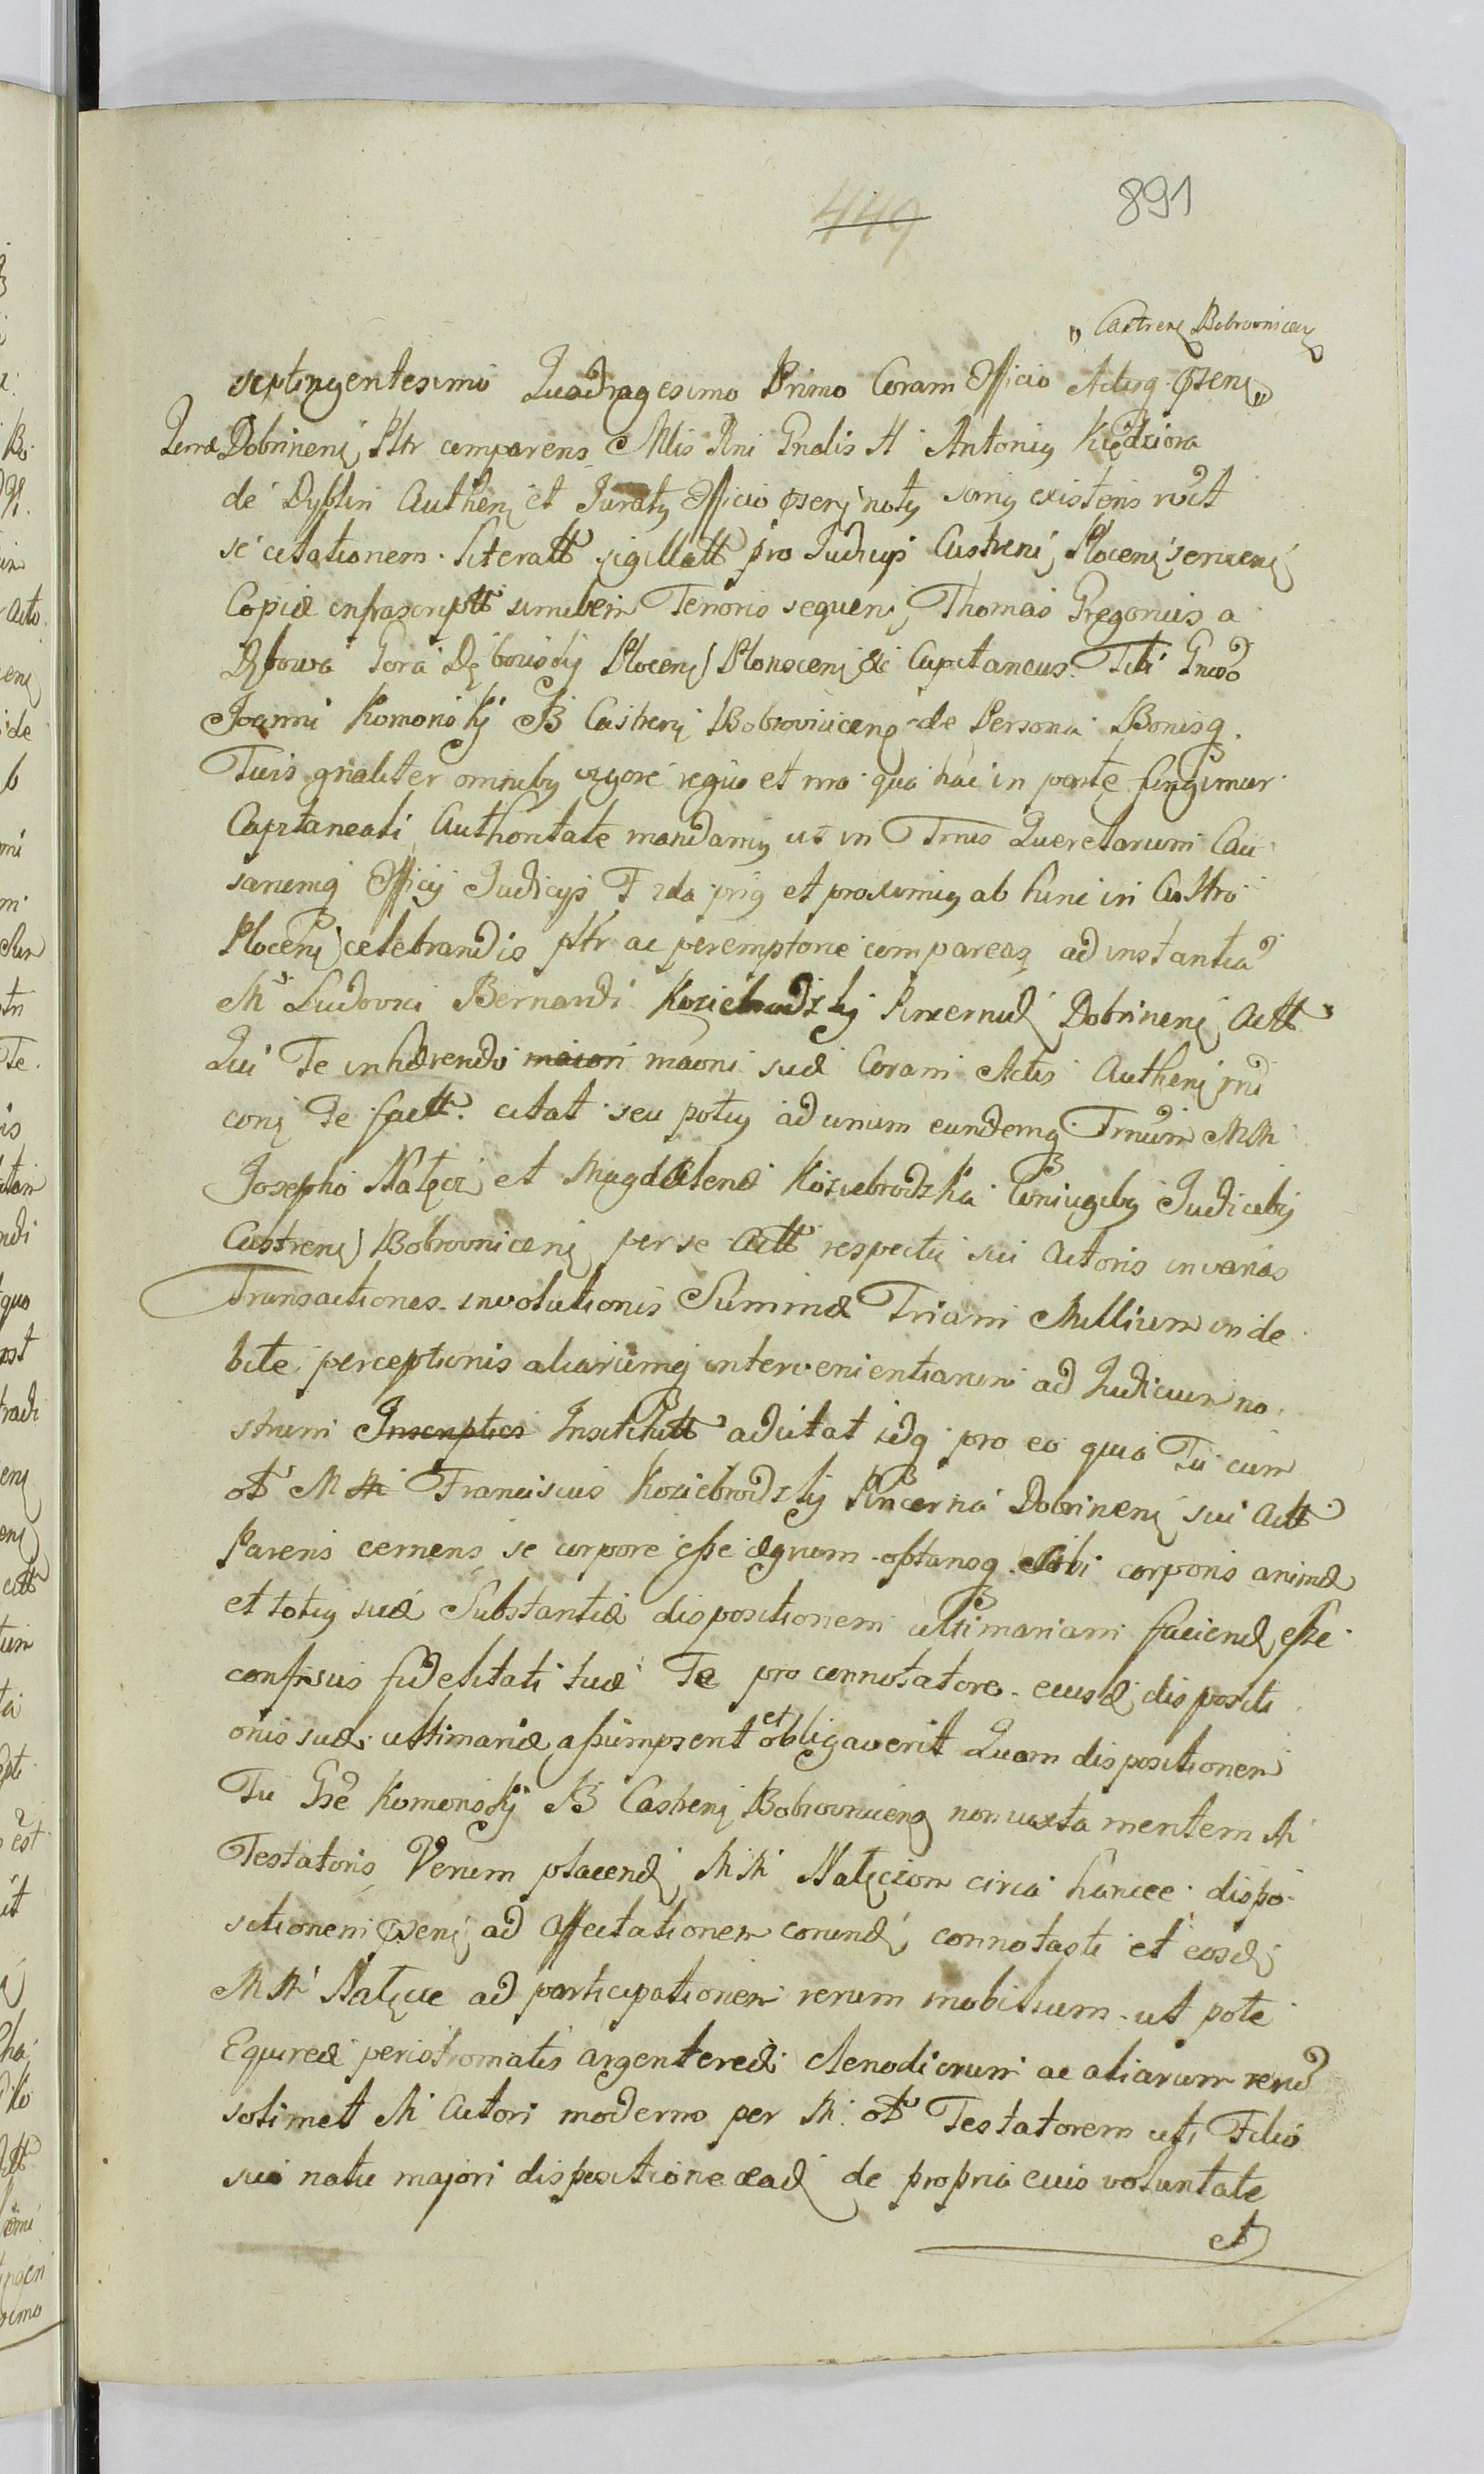 449 891
„ Castren Bobrovnicen
septingentesimo Quadragesimo Primo Coram Officio Actisq. psen„
Terræ Dobrinen Pltr comparens Mlis Rni Gnalis H Antoniy Kędziora
de Dyblin Authen et Juraty Officio psen noty sany existens rcvit
se citationem Literatt sigillatt pro Judicys Castren Plocen servien
Copiæ infrascriptt similem Tenoris sequen Thomas Gregorius a
Dębowa Gora Dębowsky Plocen Plonscen & Capitaneus. Tibi Gnoso
Joanni Komorisky B Castren Bobrovnicen de Persona Bonisq.
Tuis gnaliter omniby vigore regio et mo qua hac in parte fungimur
Capitaneali Authoritate mandamy ut in Tmis Querelarum Cau
sarumq Officy Judicys F 2da prig et proximiy ab hinc in Castro
Plocen celebrandis pltr ac peremptorie compareas ad instantia
M Ludovici Bernardi Koziebrodzky Pincernid Dobrinen Actt
Qui Te inhærendo maiori maoni suæ Coram Actis Authen
con de fact. citat seu potiy ad unum eundemq Tmum MM
Josepho Nałęcz et Magdalenæ Koziebrodzka Coniugiby Judiciby
Castren Bobrovnicen per se Actt respectu sui Actoris in varias
Transactiones involutionis Summæ Trium Millium inde
bite perceptionis aliarumq intervenientiarum ad Judicium no
strum Inscriptio Institutt adcitat idq pro eo quia Tu cum
ol M M Franciscus Koziebrodzky Pincerna Dobrinen sui Actt
Parens cernens se corpore esse ægrum optansq sibi corporis animæ
et totiy suæ Substantiæ dispositionem ultimariam faciend esse
confisus fidelitati tuæ Te pro connotatore eiusd dispositi
onis suæ ultimariæ assumpserit et obligaverit Quam dispositionem
Tu Gse Komorisky B Castren Bobrovnicen non iuxta mentem M
Testatoris Verum placend MM Nałęczom circa hancce dispo
sitionem psen ad affectationem corund connotasti et eosd
MM Nałęcze ad participationem rerum mobilium ut pote
Equireæ peristromatis argentereæ clenodiorum ac aliarum reru
solimet M Actori moderno per M. ol Testatorem uti Filio
suo natu majori dispositione ead de propria eius voluntate
et